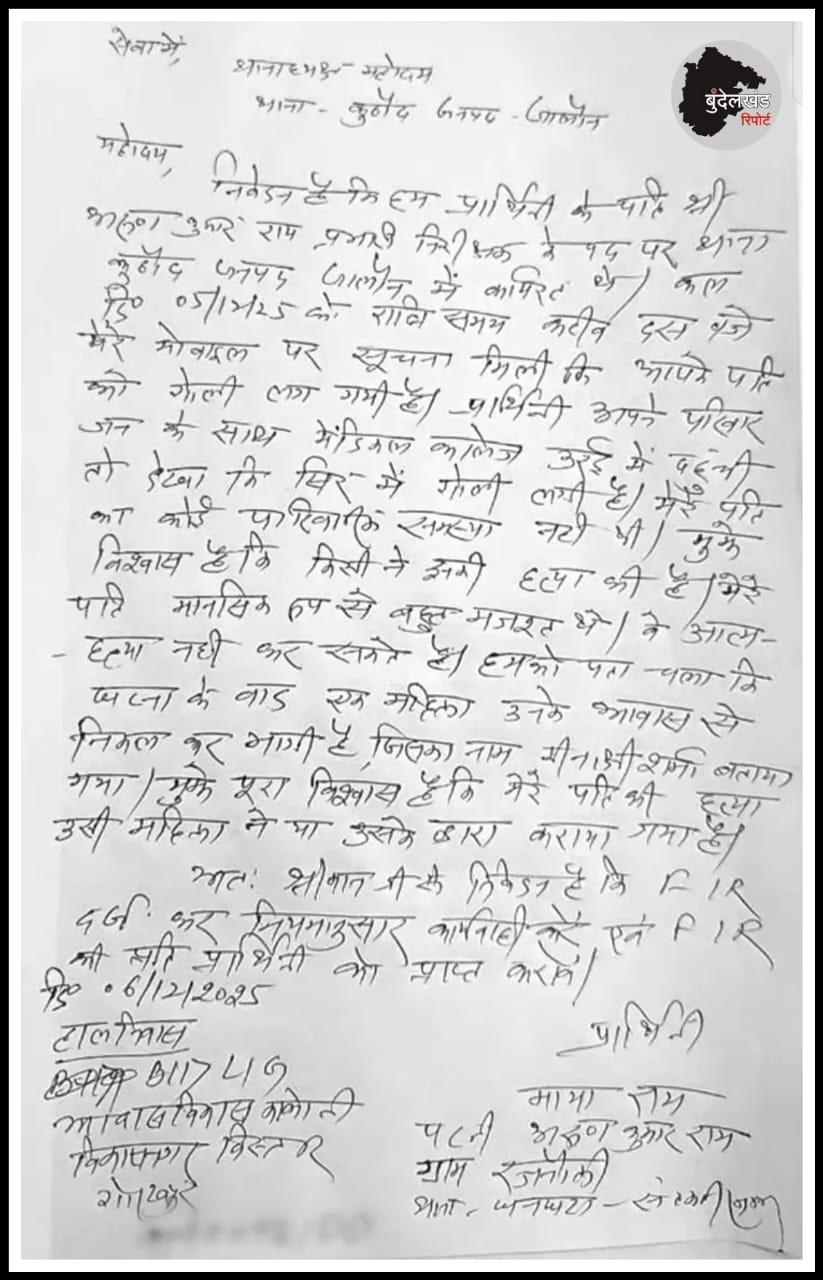 सेवा में,
थानाध्यक्ष महोदय
थाना - कुठौंद जनपद - जालौन
बुंदेलखंड
रिपोर्ट
महोदय,
निवेदन है कि हम प्रार्थिनी के पति श्री
अरूण कुमार राय प्रभारी निरीक्षक के पद पर थाना
कुठौंद जनपद जालौन में कार्यरत थे। कल
दि० 05/12/25 को रात्रि समय करीब दस बजे
मेरे मोबाइल पर सूचना मिली कि आपके पति
को गोली लग गयी है। प्रार्थिनी अपने परिवार
जन के साथ मेडिकल कालेज उरई में पहुंची
तो देखा कि सिर में गोली लगी है। मेरे पति
का कोई पारिवारिक समस्या नही थी। मुझे
विश्वास है कि किसी ने इनकी हत्या की है। मेरे
पति मानसिक रूप से बहुत मजबूत थे। वे आत्म-
- हत्या नही कर सकते है। हमको पता चला कि
घटना के बाद एक महिला उनके आवास से
निकल कर भागी है, जिसका नाम मीनाक्षी शर्मा बताया
गया। मुझे पूरा विश्वास है कि मेरे पति की हत्या
उसी महिला ने या उसके द्वारा कराया गया है।
अतः श्रीमान जी से निवेदन है कि FIR
दर्ज कर नियमानुसार कार्यवाही करें एवं FIR
की प्रति प्रार्थिनी को प्राप्त करावें।
दि० 06/12/2025
हालनिवास
B117 LIG
आवास विकास कालोनी
विकासनगर विस्तार
गोरखपुर
प्रार्थिनी
माया राय
पत्नी अरूण कुमार राय
ग्राम
थाना - धनघटा - संतकबीरनगर